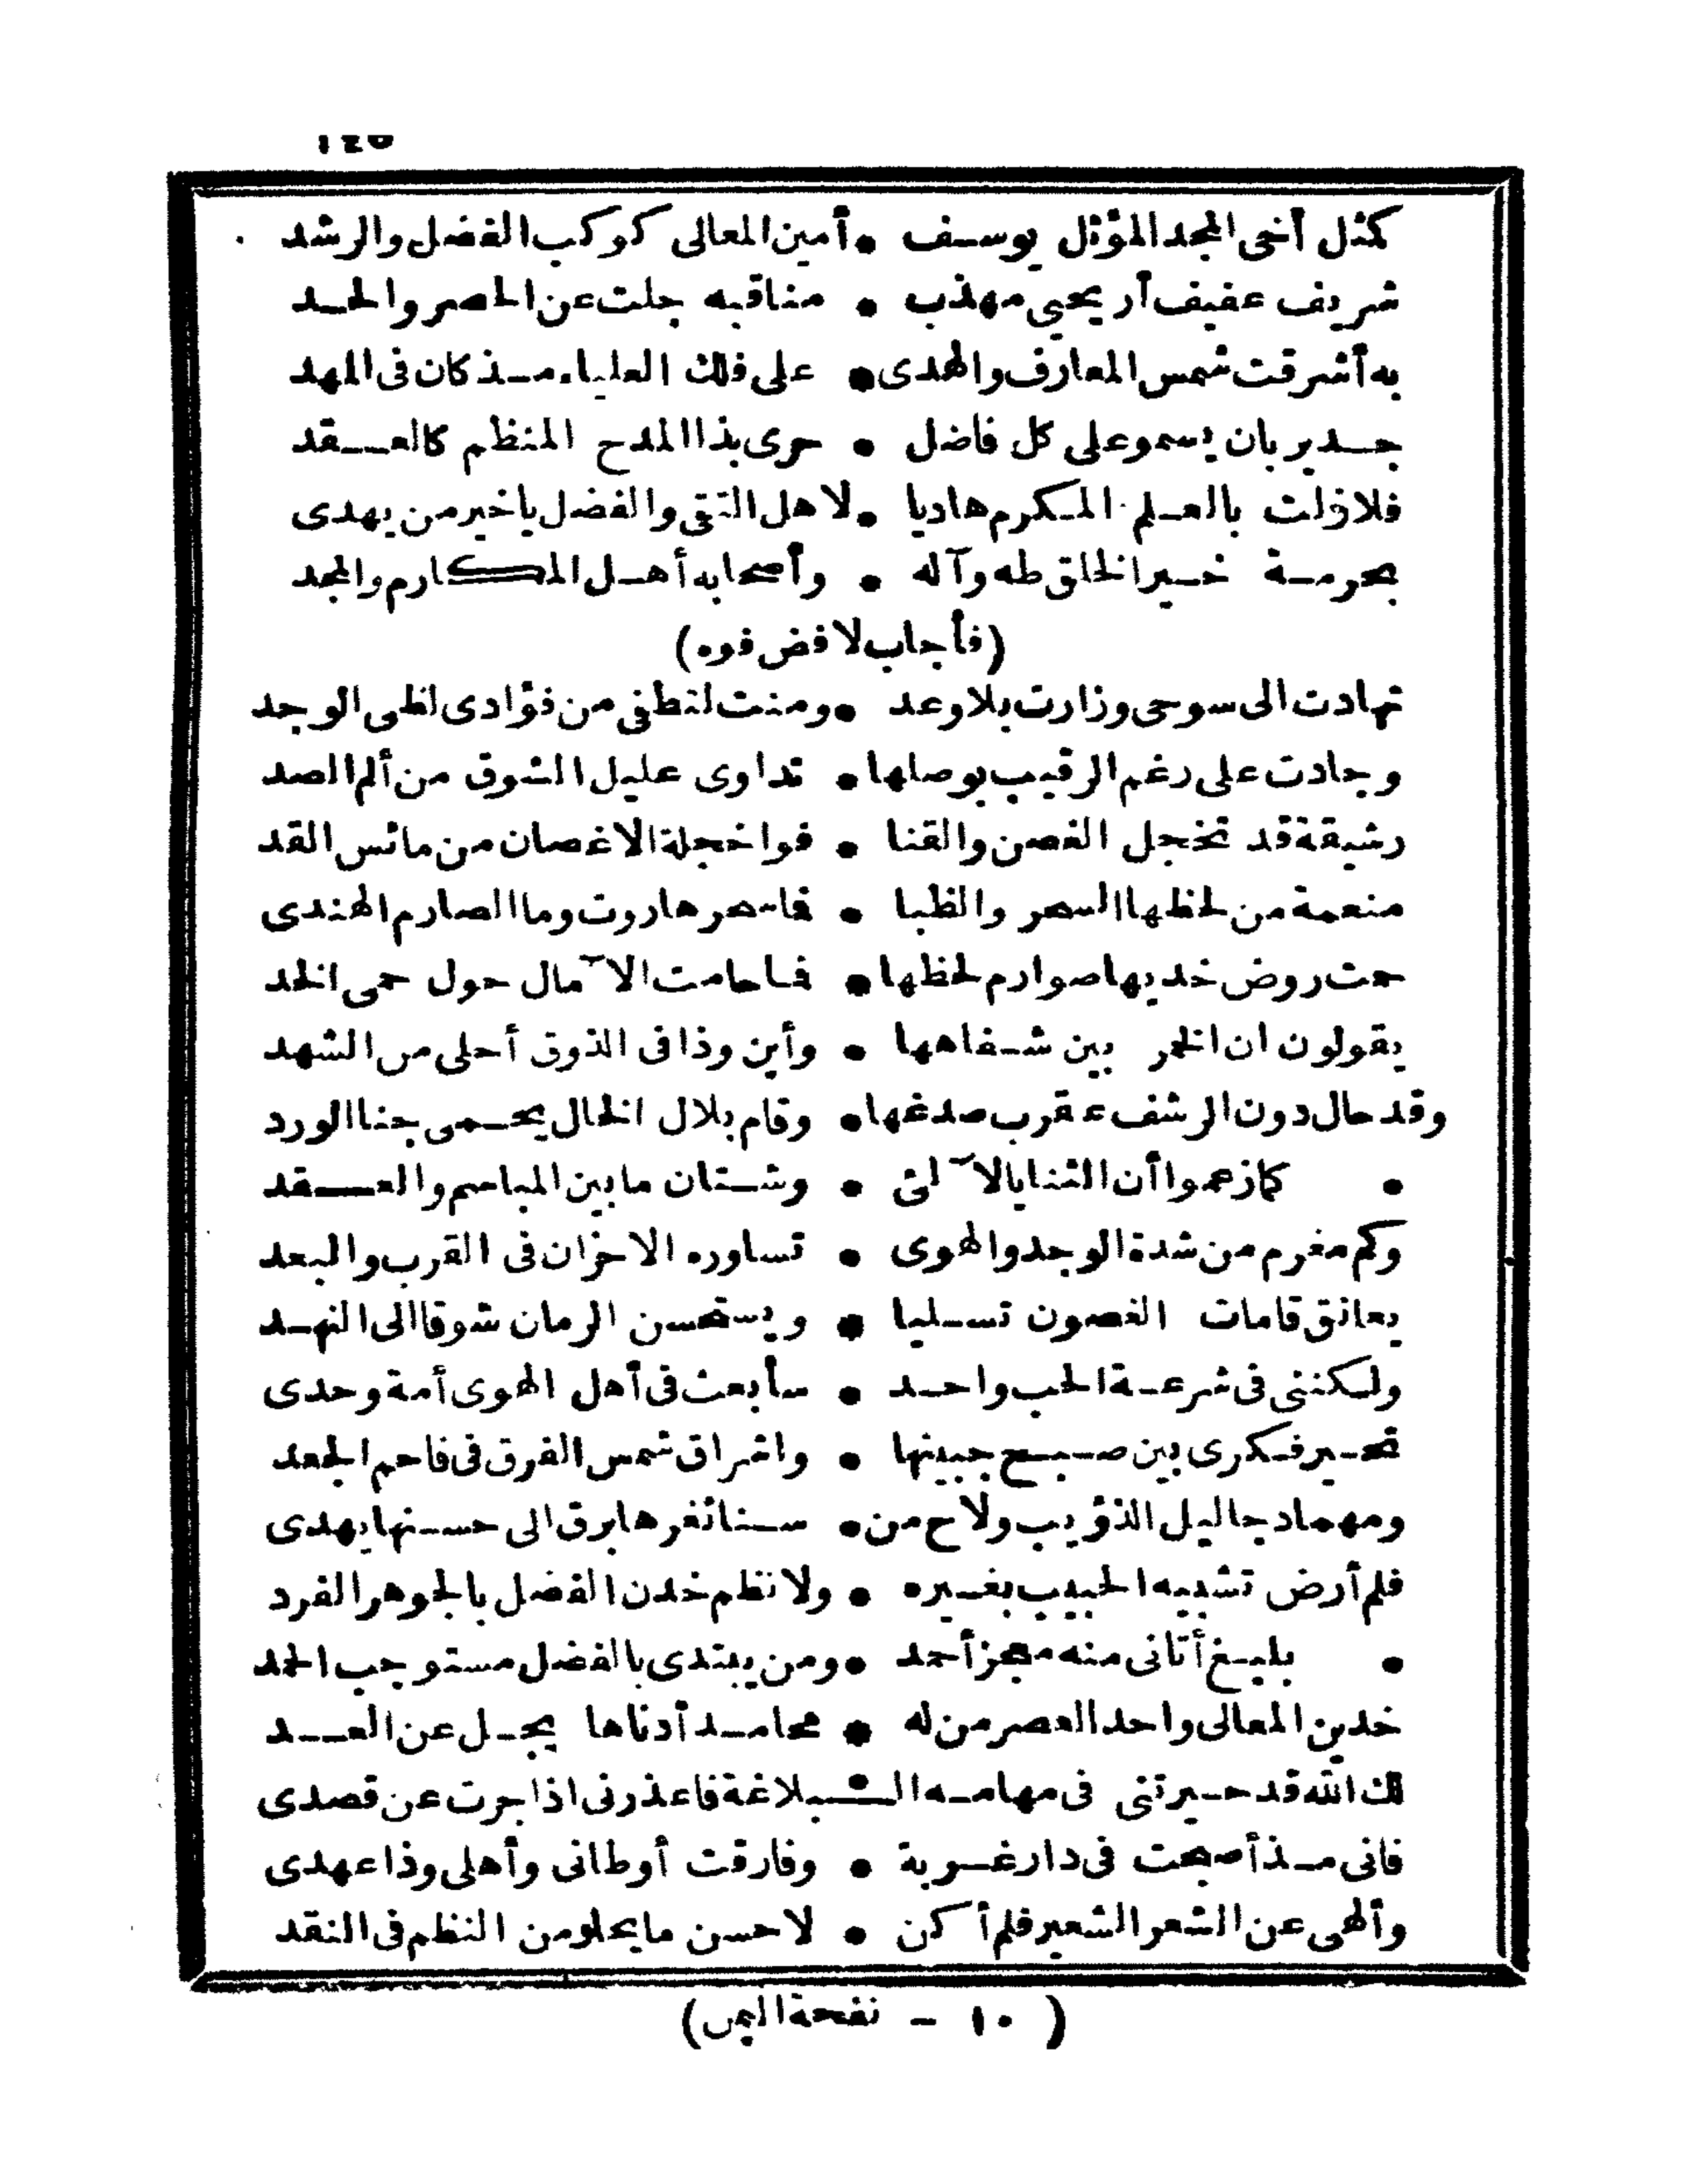 ١٤٥
كمثل أخى المجد المؤثل يوسف • أمين المعالى كوكب الفضل والرشد
شريف عفيف أريحي مهذب • مناقبه جلت عن الحصر والحد
به أشرقت شمس المعارف والهدى • على فلك العلياء مذ كان فى المهد
جدير بان يسمو على كل فاضل • حرى بذا المدح المنظم كالعقد
فلا زلت بالعلم المكرم هاديا • لاهل التقى والفضل يا خير من يهدى
بحرمة خير الخلق طه وآله • وأصحابه أهل المكارم والمجد
(فأجاب لا فض فوه)
تهادت الى سوحى وزارت بلا وعد • ومنت لتطفى من فؤادى لظى الوجد
وجادت على رغم الرقيب بوصلها • تداوى عليل الشوق من ألم الصد
رشيقة قد تخجل الغصن والقنا • فواخجلة الاغصان من مائس القد
منعمة من لحظها السحر والظبا • فما سحر هاروت وما الصارم الهندى
حمت روض خديها صوارم لحظها • فما حامت الآمال حول حمى الخد
يقولون ان الخمر بين شفاهها • وأين وذا فى الذوق أحلى من الشهد
وقد حال دون الرشف عقرب صدغها • وقام بلال الخال يحمى جنا الورد
• كما زعموا أن الثنايا لآلئ • وشتان ما بين المباسم والعقد
وكم مغرم من شدة الوجد والهوى • تساوره الاحزان فى القرب والبعد
يعانق قامات الغصون تسليا • ويستحسن الرمان شوقا الى النهد
ولكننى فى شرعة الحب واحد • سأبعث فى أهل الهوى أمة وحدى
تحير فكرى بين صبح جبينها • واشراق شمس الفرق فى فاحم الجعد
ومهما دجا ليل الذؤيب ولاح من • سنا ثغرها برق الى حسنها يهدى
فلم أرض تشبيه الحبيب بغيره • ولا نظم خدن الفضل بالجوهر الفرد
• بليغ أتانى منه معجز أحمد • ومن يبتدى بالفضل مستوجب الحمد
خدين المعالى واحد العصر من له • محامد أدناها يجل عن العد
لك الله قد حيرتنى فى مهامه الـ•ـبلاغة فاعذرنى اذا جرت عن قصدى
فانى مذ أصبحت فى دار غربة • وفارقت أوطانى وأهلى وذا عهدى
وألهى عن الشعر الشعير فلم أكن • لاحسن ما يحلو من النظم فى النقد
( ١٠ - نفحة اليمن)